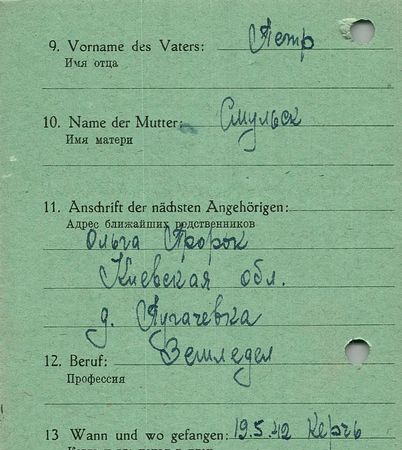 9. Vorname des Vaters: Петр
Имя отца
10. Name der Mutter: Смульск
Имя матери
11. Anschrift der nächsten Angehörigen:
Адрес ближайших родственников
Ольга Пророк
Киевская обл.
д. Пугачевка
12. Beruf: Земледел
Профессия
13 Wann und wo gefangen: 19.5.42 Керчь